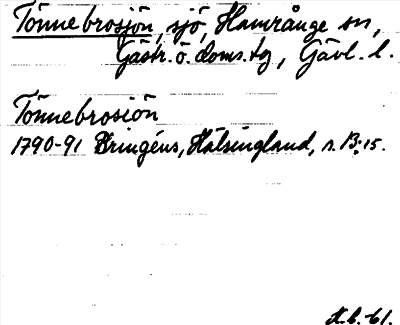 Tönnebrosjön, sjö, Hamrånge sn,
Gästr. ö. doms. tg, Gävl. l.
Tönnebrosiön
1790-91 Bringéus, Hälsingland, s. B:15.
-61.